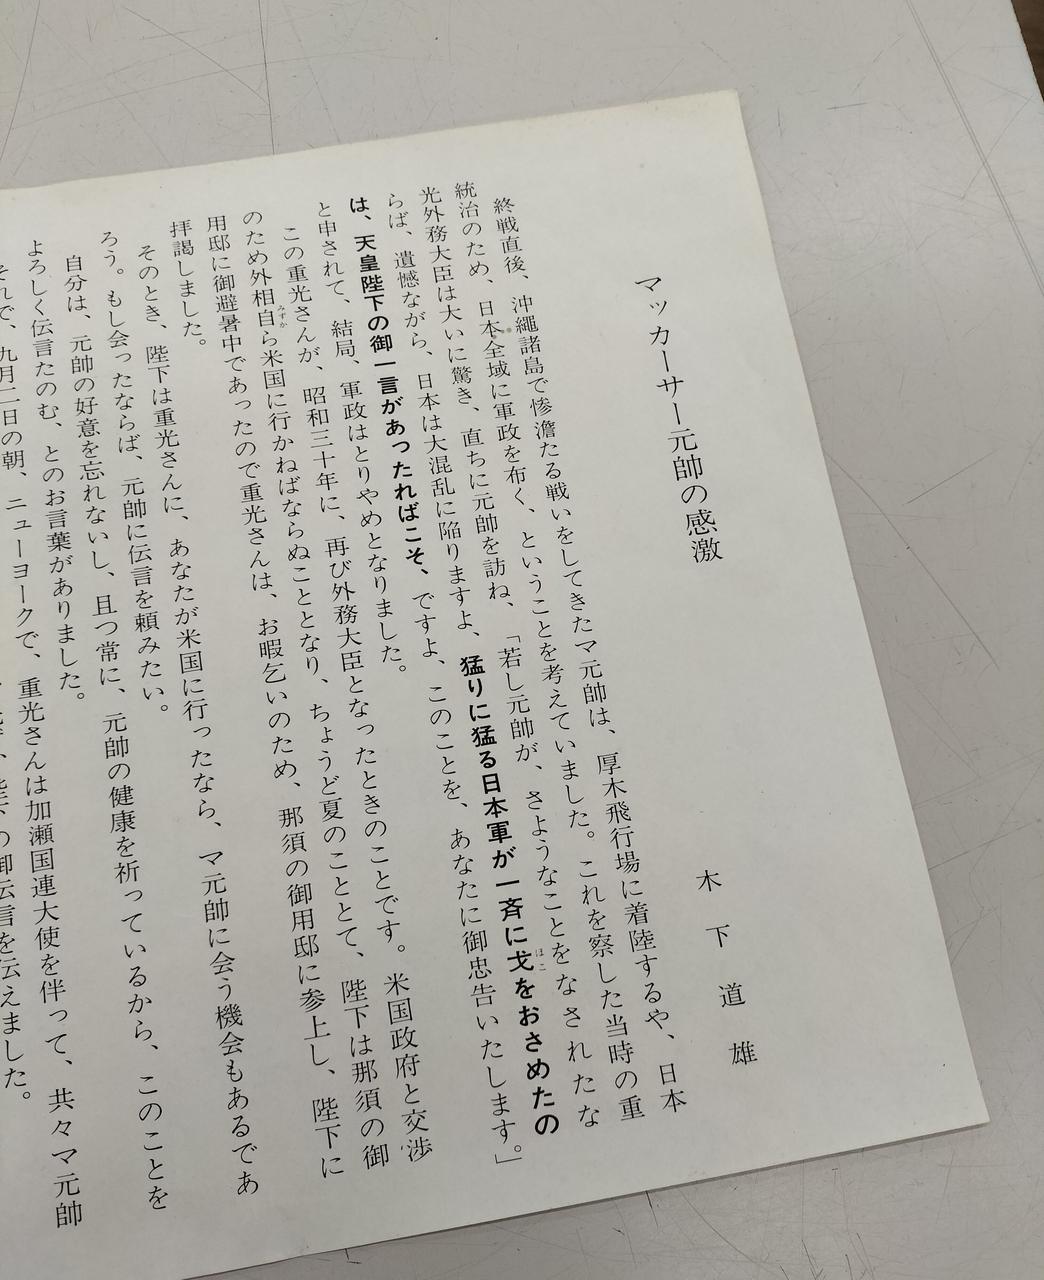 マッカーサー元帥の感激
木下道雄
終戦直後、沖繩諸島で惨澹たる戦いをしてきたマ元帥は、厚木飛行場に着陸するや、日本
統治のため、日本全域に軍政を布く、ということを考えていました。これを察した当時の重
光外務大臣は大いに驚き、直ちに元帥を訪ね、「若し元帥が、さようなことをなされたな
らば、遺憾ながら、日本は大混乱に陥りますよ、猛りに猛る日本軍が一斉に戈をおさめたの
ほこ
は、天皇陛下の御一言があったればこそ、ですよ、このことを、あなたに御忠告いたします。」
と申されて、結局、軍政はとりやめとなりました。
この重光さんが、昭和三十年に、再び外務大臣となったときのことです。米国政府と交渉
のため外相自ら米国に行かねばならぬこととなり、ちょうど夏のこととて、陛下は那須の御
みずか
用邸に御避暑中であったので重光さんは、お暇乞いのため、那須の御用邸に参上し、陛下に
拝謁しました。
そのとき、陛下は重光さんに、あなたが米国に行ったなら、マ元帥に会う機会もあるであ
ろう。もし会ったならば、元帥に伝言を頼みたい。
自分は、元帥の好意を忘れないし、且つ常に、元帥の健康を祈っているから、このことを
よろしく伝言たのむ、とのお言葉がありました。
それで、九月二日の朝、ニューヨークで、重光さんは加瀬国連大使を伴って、共々マ元帥
の御伝言を伝えました。